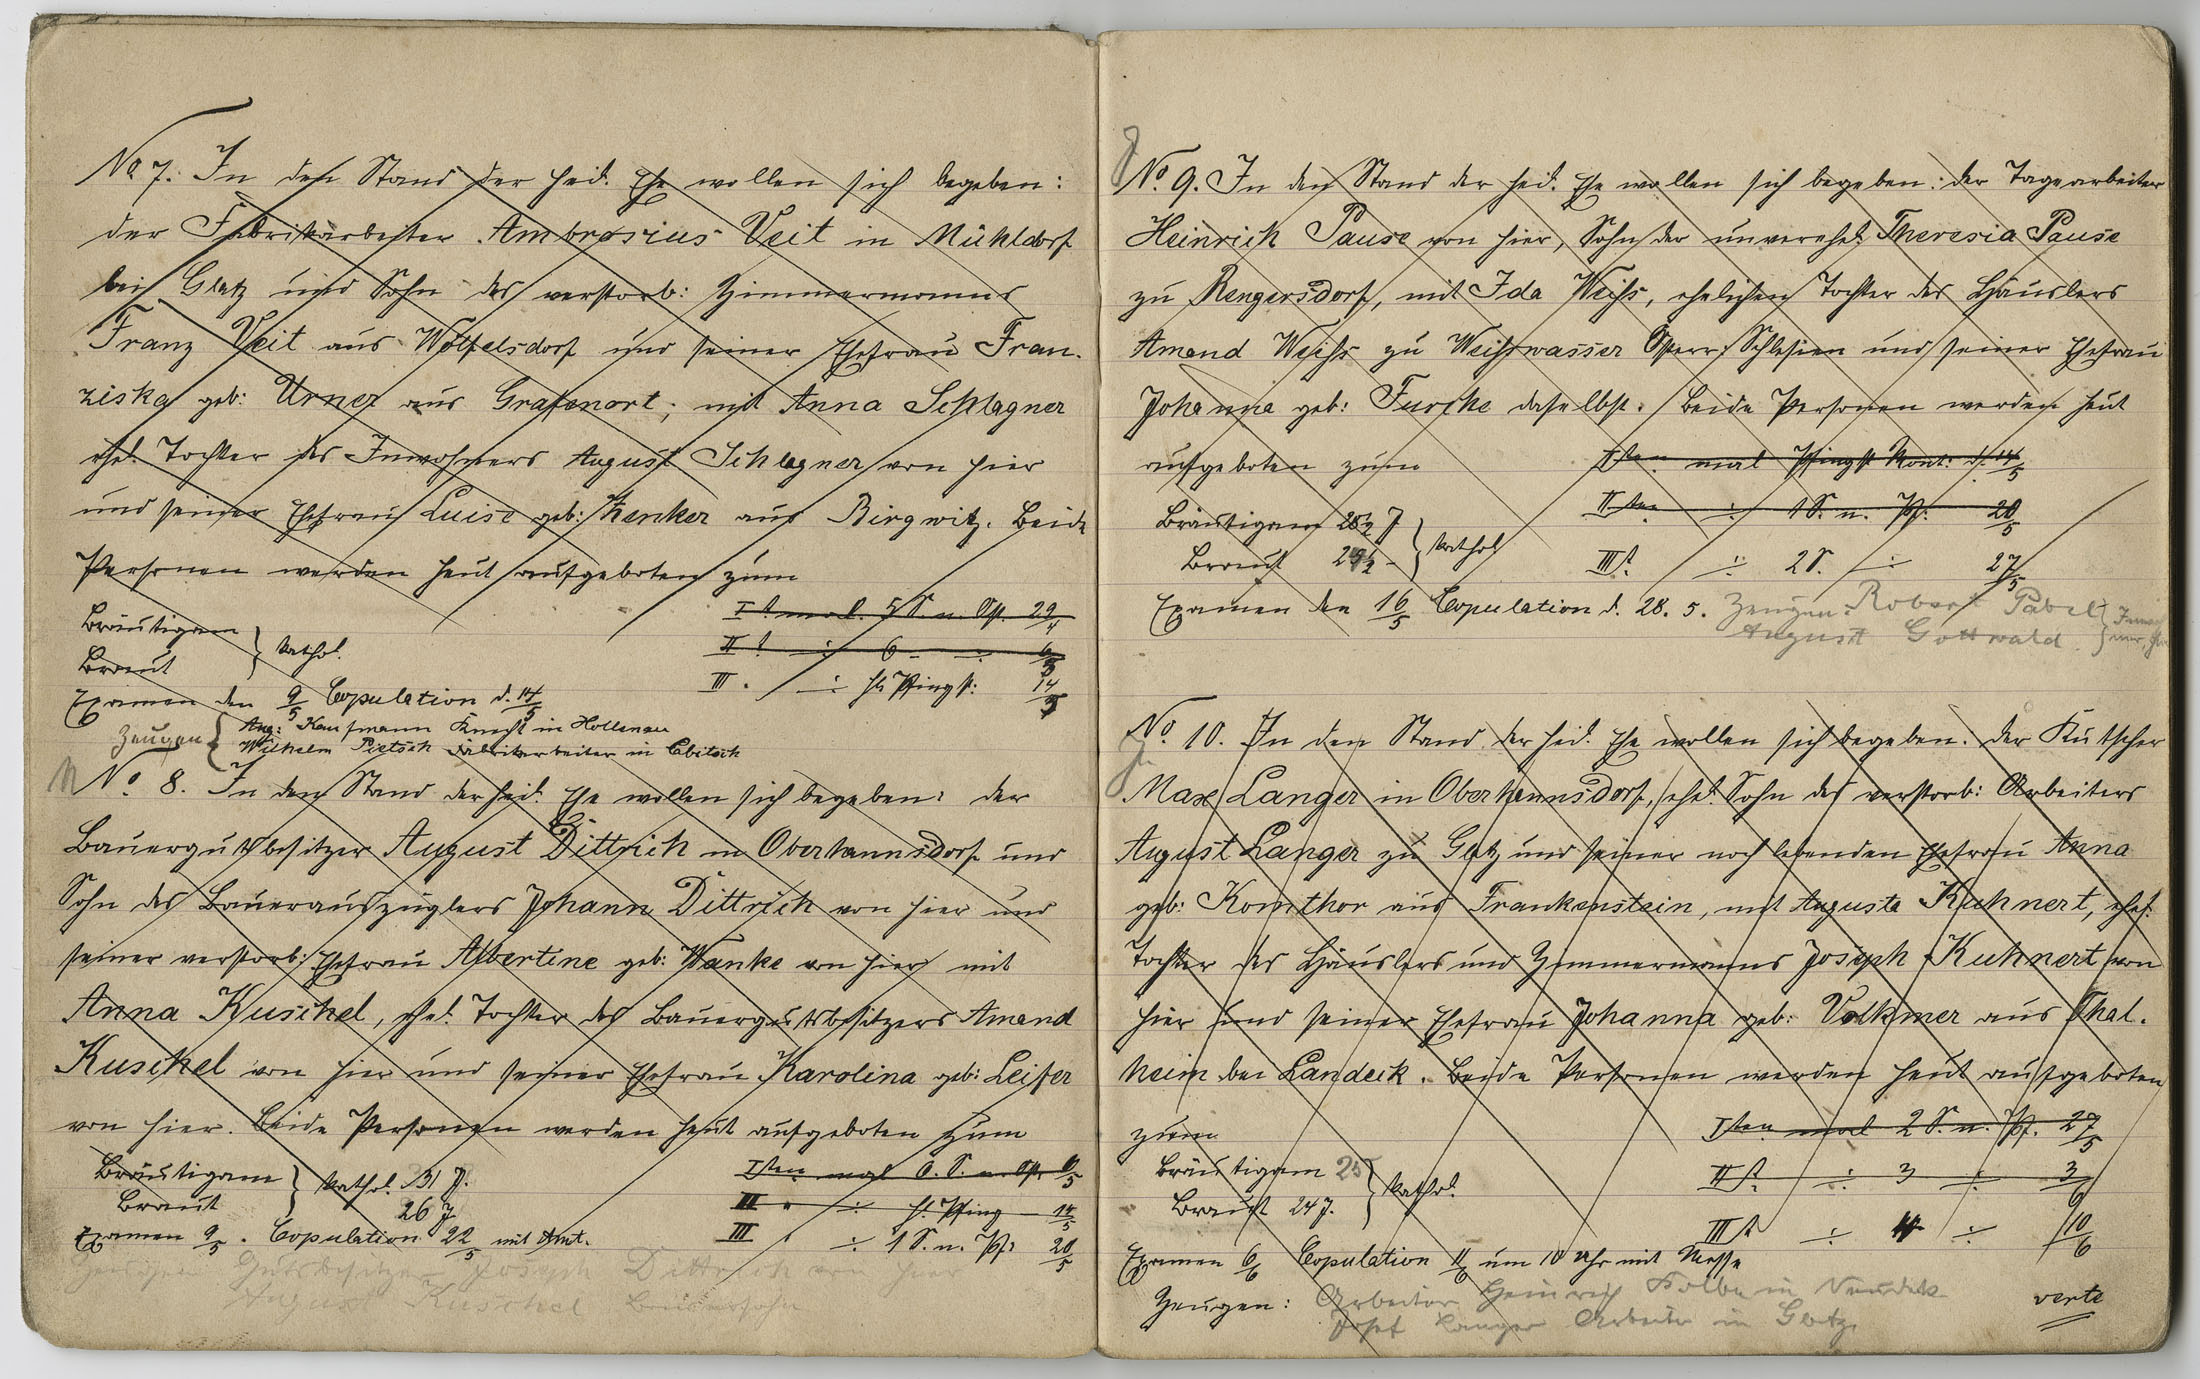 No 7. In den Stand der heil. Ehe wollen sich begeben:
der Fabrikarbeiter Ambrosius Veit in Mühldorf
bei Glatz und Sohn des verstorb: Zimmermanns
Franz Veit aus Wölfelsdorf und seiner Ehefrau Fran-
ziska geb: Urner aus Grafenort; mit Anna Schlagner
ehel. Tochter des Inwohners August Schlagner von hier
und seiner Ehefrau Luise geb: Zenker aus Birgwitz. Beide
Personen werden heut aufgeboten zum
Bräutigam
Braut } kathol.
I t. mal. 5 S. n. Ost. 29/4
II t. ÷ 6 - ÷ 6/5
III. ÷ hl. Pfingst: 14/5
Examen den 9/5 Copulation d. 14/5
Zeugen { Aug: Kaufmann Knecht in Hollenau
Wilhelm Pietsch Fabrikarbeiter in Labitsch
No. 8. In den Stand der heil. Ehe wollen sich begeben: der
Bauergutsbesitzer August Dittrich in Oberhannsdorf und
Sohn des Bauerauszüglers Johann Dittrich von hier und
seiner verstorb: Ehefrau Albertine geb: Wanke von hier mit
Anna Kuschel, ehel. Tochter des Bauergutsbesitzers Amand
Kuschel von hier und seiner Ehefrau Karolina geb: Leifer
von hier. Beide Personen werden heut aufgeboten zum
Bräutigam } kathol. 31 J.
Braut 26 J
Iten mal 6. S. n. Ost. 6/5
II " ÷ hl. Pfing - 14/5
III " ÷ 1 S. n. Pf: 20/5
Examen 9/5. Copulation 22/5 mit Amt.
Zeugen: Gutsbesitzer Joseph Dittrich von hier
August Kuschel Bauersohn
No. 9. In den Stand der heil. Ehe wollen sich begeben: der Tagearbeiter
Heinrich Pause von hier, Sohn der unverehel. Theresia Pause
zu Rengersdorf, mit Ida Weiss, ehelichen Tochter des Häuslers
Amand Weiss zu Weisswasser Österr. Schlesien und seiner Ehefrau
Johanna geb: Furche daselbst. Beide Personen werden heut
aufgeboten zum
Iten mal Pfingst Mont: d. 14/5
IIten ÷ 1 S. n. Pf: 20/5
IIIt. ÷ 2 S. ÷ 27/5
Bräutigam 28 1/2 J
Braut 29 1/2 - } kathol
Examen den 16/5 Copulation d. 28. 5. Zeugen: Robert Pabel
August Gottwald
No. 10. In den Stand der heil. Ehe wollen sich begeben: der Kutscher
Max Langer in Oberhannsdorf, ehel. Sohn des verstorb: Arbeiters
August Langer zu Glatz und seiner noch lebenden Ehefrau Anna
geb: Kornthor aus Frankenstein, mit Augusta Kuhnert, ehel.
Tochter des Häuslers und Zimmermanns Joseph Kuhnert von
hier und seiner Ehefrau Johanna geb: Volkmer aus Thal-
heim bei Landeck. Beide Personen werden heut aufgeboten
zum
Iten mal 2 S. n. Pf. 27/5
IIt. ÷ 3 ÷ 3/6
IIIt ÷ 4 ÷ 10/6
Bräutigam 25
Braut 24 J. } kathol.
Examen 6/6 Copulation 11/6 um 10 Uhr mit Messe
Zeugen: Arbeiter Heinrich Kolbe in Neudeck
Josef Langer Arbeiter in Glatz
verte